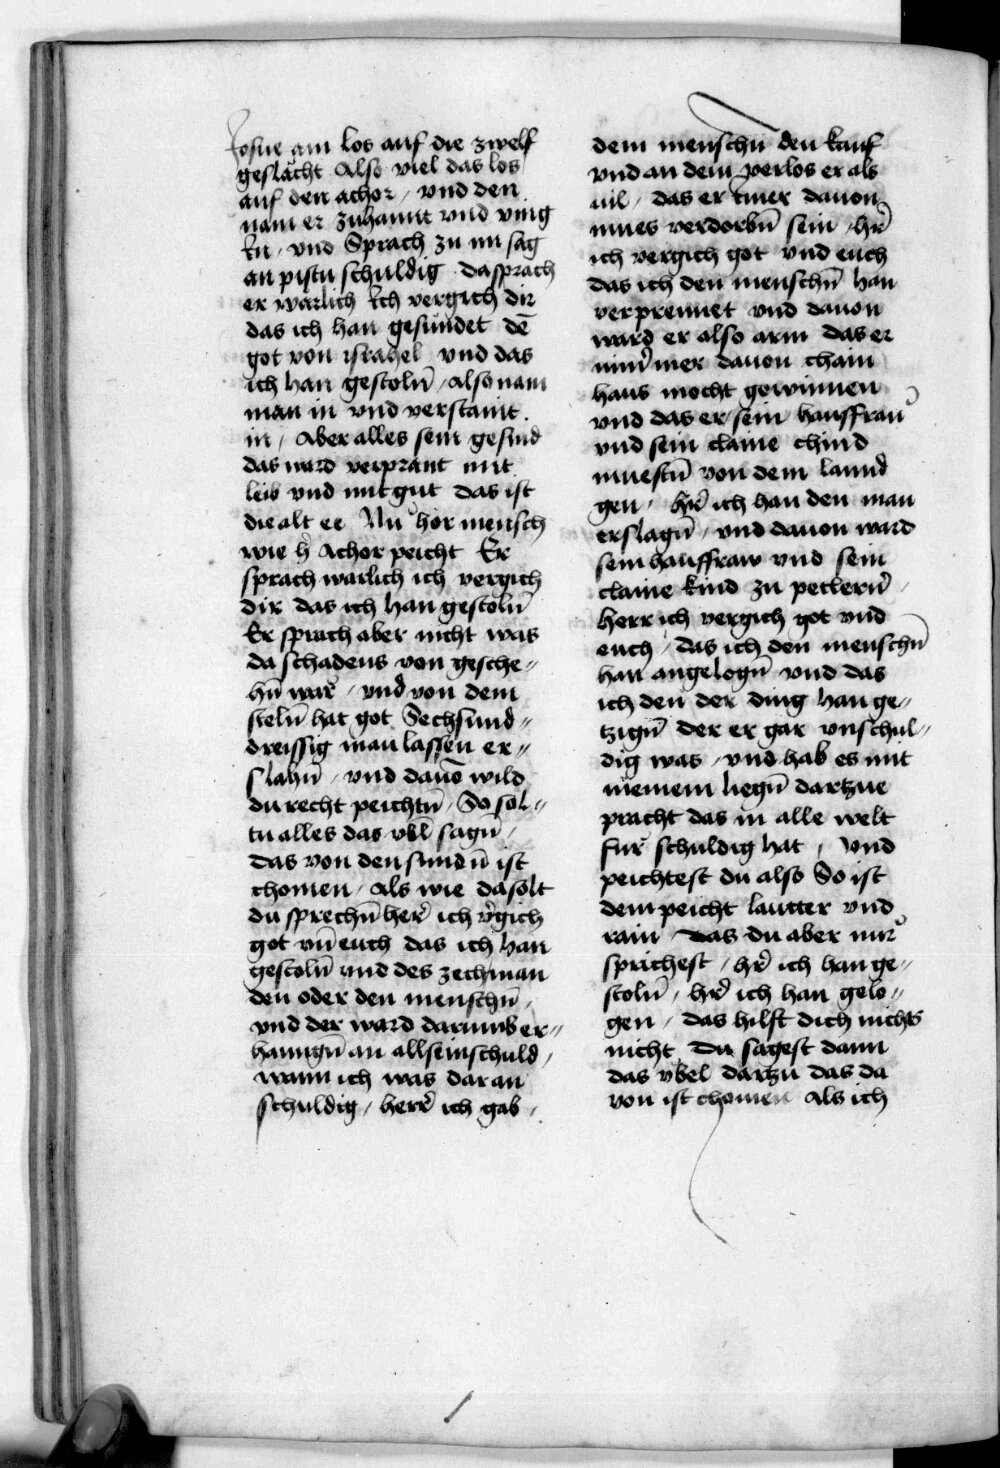 Josue ain los auf die zwelf
geslächt Also viel das los
auf den achor / vnd den
nam er zuhannt vnd vnig
kn / vnd Sprach zu im sag
an pistu schuldig da sprach
er warlich Ich vergich dir
das ich han gesundet dē
got von israhel vnd das
ich han gestoln̄ / also nam
man in vnd verstaint
in / Aber alles sein gesind
das ward verprant mit
leib vnd mit gut das ist
die alt ee Nu hör mensch
wie h̄ Achor peicht Er
sprach warlich ich vergich
dir das ich han gestoln̄
Er sprach aber nicht was
da schadens von gesche⸗
hn̄ war / vnd von dem
steln̄ hat got Sechsund⸗
dreissig man lassen er⸗
slahn̄ / vnd dauō wild
du recht peichtn̄ / So sol⸗
tu alles das vbl̄ sagn̄ /
das von den sundn̄ ist
chomen / als wie da solt
du sprechn̄ her̄ ich v̄gich
got vn̄ euch das ich han
gestoln̄ vnd des zech man
den oder den menschn̄ /
vnd der ward darumb er⸗
hanngn̄ an all sein schuld /
wann ich was daran
schuldig / herr̄ ich gab /
dem menschn̄ den kauf
vnd an dem verlos er als
uil / das er ymer dauon
mues verdorbn̄ sein / hr̄
ich vergich got vnd euch
das ich den menschn̄ han
verprennet vnd dauon
ward er also arm das er
nim̄ mer dauon chain
haus mocht gewinnen
vnd das er / sein hausffrau
vnd sein claine chind
muestn̄ von dem lannd
gen / hr̄ ich han den man
erslagn̄ / vnd dauon ward
sein hauffraw vnd sein
claine kind zu petlern̄ /
Herr ich vergich got vnd
euch / das ich den menschn̄
han angelogn̄ vnd das
ich den der ding han ge⸗
tzign̄ der er gar vnschul⸗
dig was / vnd hab es mit
meinem liegn̄ dartzue
pracht das in alle welt
fur schuldig hat / Vnd
peichtest du also So ist
dein peicht lautter vnd
rain Das du aber nur
sprichest / hr̄ ich han ge⸗
stoln̄ / hr̄ ich han gelo⸗
gen / das hilft dich nichts
nicht Du sagest dann
das vbel dartzu das da
von ist chomen Als ich